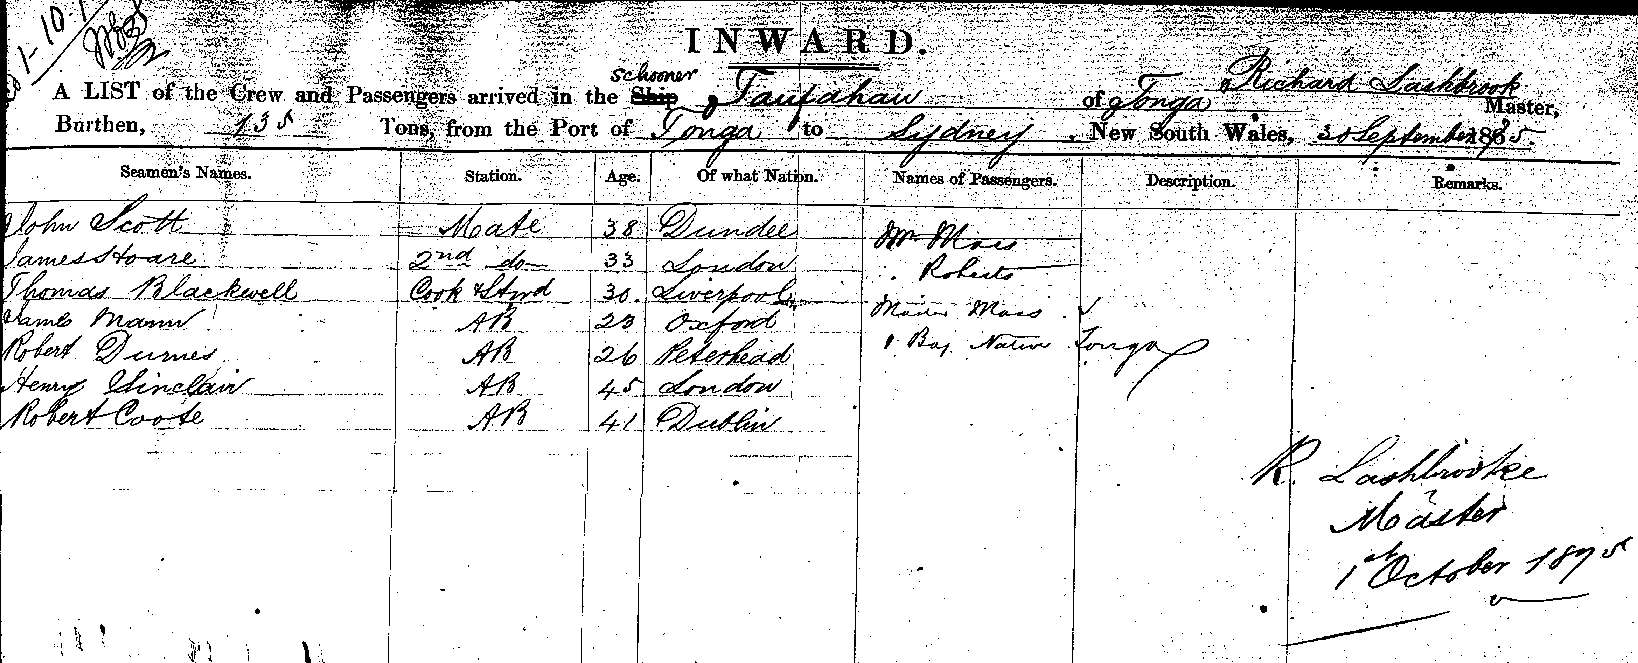 1-10-
INWARD.
schooner
A LIST of the Crew and Passengers arrived in the Ship Taufahau of Tonga Richard Lashbrook Master,
Burthen, 135 Tons, from the Port of Tonga to Sydney New South Wales, 30 September 1875.
Seamen's Names. Station. Age. Of what Nation. Names of Passengers. Description. Remarks.
John Scott Mate 38 Dundee Mr Moss
James Hoare 2nd do 33 London Roberts
Thomas Blackwell Cook & Stwd 30. Liverpool
James Mann AB 23 Oxford Moss
Robert Durnes AB 26 Peterhead 1 Boy Native Tonga
Henry Sinclair AB 45 London
Robert Coote AB 41 Dublin
R. Lashbrooke
Master
1st October 1875